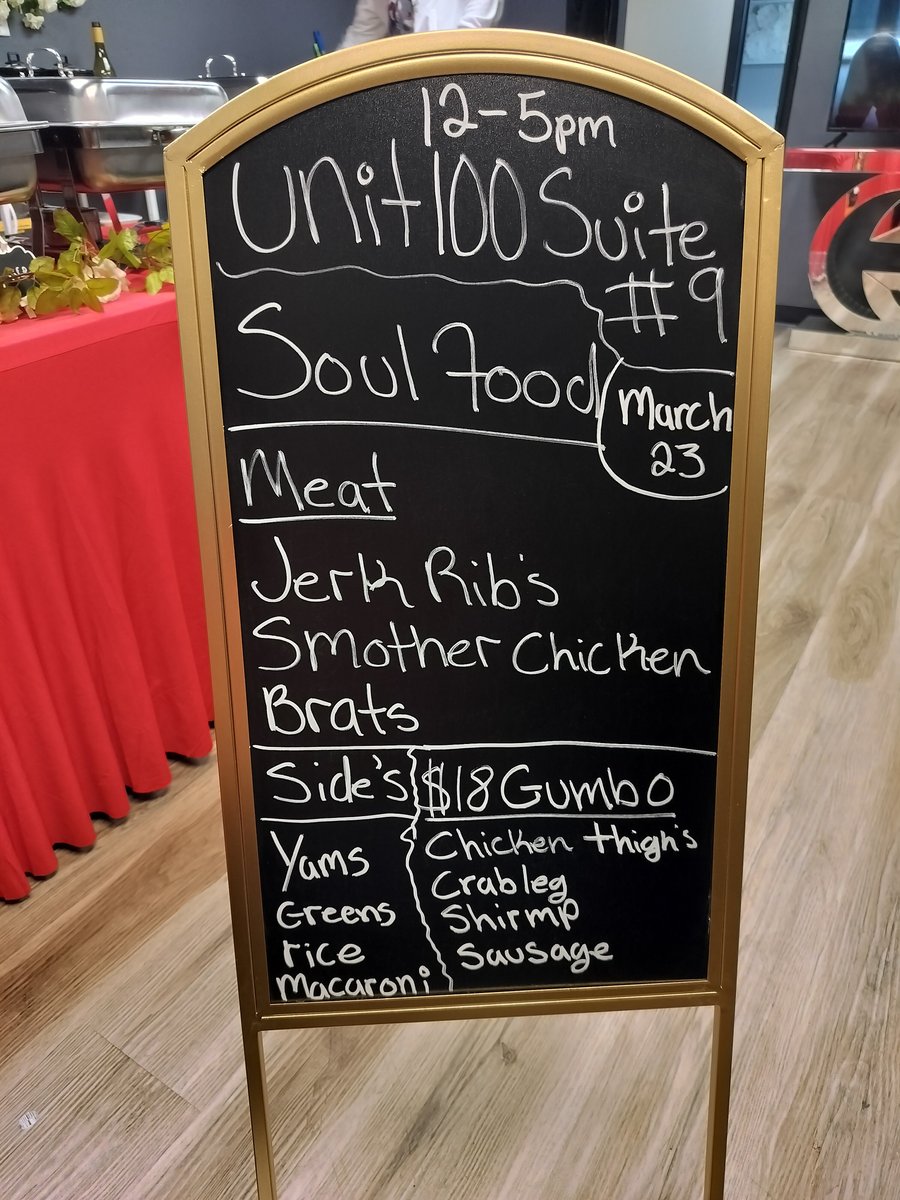 12-5pm
Unit 100 Suite
#9
Soul Food
March
23
Meat
Jerk Rib's
Smother Chicken
Brats
Side's
Yams
Greens
rice
Macaroni
$18 Gumbo
Chicken thigh's
Crableg
Shirmp
Sausage